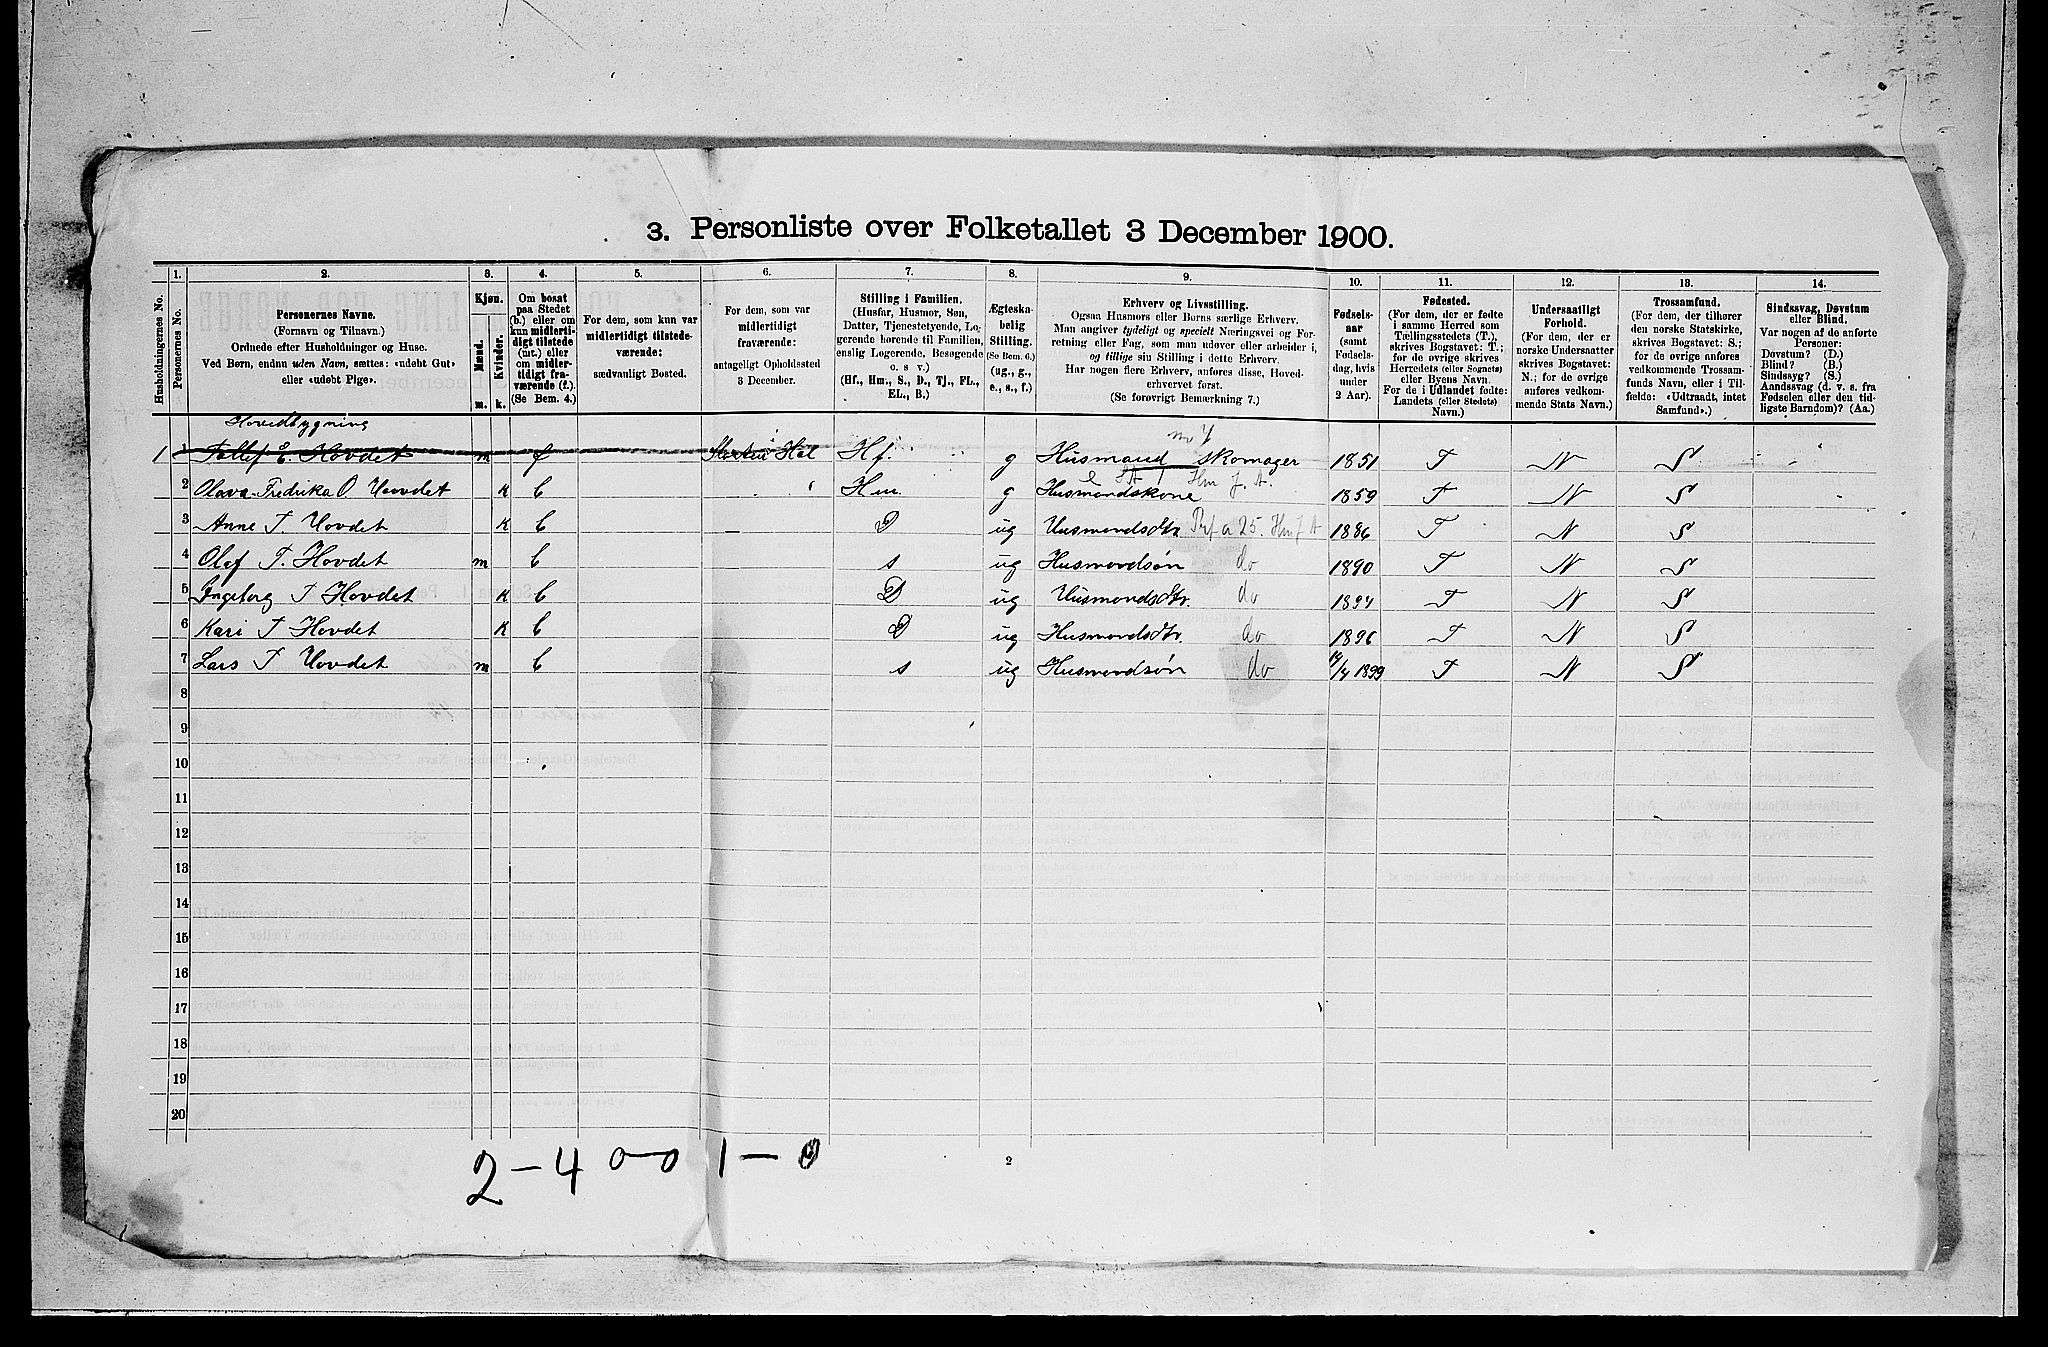 3. Personliste over Folketallet 3 December 1900.
Husholdningernes No.
1. Personernes No.
2. Personernes Navne.
(Fornavn og Tilnavn.)
Ordnede efter Husholdninger og Huse.
Ved Børn, endnu uden Navn, sættes: «udøbt Gut»
eller «udøbt Pige».
3. Kjøn.
Mænd. m.
Kvinder. k.
4. Om bosat
paa Stedet
(b.) eller om
kun midlerti-
digt tilstede
(mt.) eller
om midler-
tidigt fra-
værende (f.).
(Se Bem. 4.)
5. For dem, som kun var
midlertidigt tilstede-
værende:
sædvanligt Bosted.
6. For dem, som var
midlertidigt
fraværende:
antageligt Opholdssted
3 December.
7. Stilling i Familien.
(Husfar, Husmor, Søn,
Datter, Tjenestetyende, Lo-
gerende hørende til Familien,
enslig Logerende, Besøgende
o. s. v.)
(Hf., Hm., S., D., Tj., FL.,
EL., B.)
8. Ægteska-
belig
Stilling.
(Se Bem. 6.)
(ug., g.,
e., s., f.)
9. Erhverv og Livsstilling.
Ogsaa Husmors eller Børns særlige Erhverv.
Man angiver tydeligt og specielt Næringsvei og For-
retning eller Fag, som man udøver eller arbeider i,
og tillige sin Stilling i dette Erhverv.
Har nogen flere Erhverv, anføres disse, Hoved-
erhvervet først.
(Se forøvrigt Bemærkning 7.)
10. Fødsels-
aar
(samt
Fødsels-
dag, hvis
under
2 Aar).
11. Fødested.
(For dem, der er fødte
i samme Herred som
Tællingsstedets (T.),
skrives Bogstavet: T.;
for de øvrige skrives
Herredets (eller Sognets)
eller Byens Navn.
For de i Udlandet fødte:
Landets (eller Stedets)
Navn.)
12. Undersaatligt
Forhold.
(For dem, der er
norske Undersaatter
skrives Bogstavet:
N.; for de øvrige
anføres vedkom-
mende Stats Navn.)
13. Trossamfund.
(For dem, der tilhører
den norske Statskirke,
skrives Bogstavet: S.;
for de øvrige anføres
vedkommende Trossam-
funds Navn, eller i Til-
fælde: «Udtraadt, intet
Samfund».)
14. Sindssvag, Døvstum
eller Blind.
Var nogen af de anførte
Personer:
Døvstum? (D.)
Blind? (B.)
Sindssyg? (S.)
Aandssvag (d. v. s. fra
Fødselen eller den tid-
ligste Barndom)? (Aa.)
Hovedbygning
1 1 Tallef E. Hovdet m f Hf. g Husmand skomager 1851 T N S
2 Olava Fredrika O. Hovdet k b Hm. g Husmandskone Hm f. A. 1859 T N S
3 Anne T Hovdet k b D ug Husmandsdtr. 25. Hm f A 1886 T N S
4 Olef T. Hovdet m b s ug Husmandsøn do 1890 T N S
5 Ingeborg T Hovdet k b D ug Husmandsdtr. do 1894 T N S
6 Kari T Hovdet k b D ug Husmandsdtr. do 1896 T N S
7 Lars T Hovdet m b s ug Husmandsøn do 14/4 1899 T N S
8
9
10
11
12
13
14
15
16
17
18
19
20
2 – 4 0 – 0 1 – 0
2